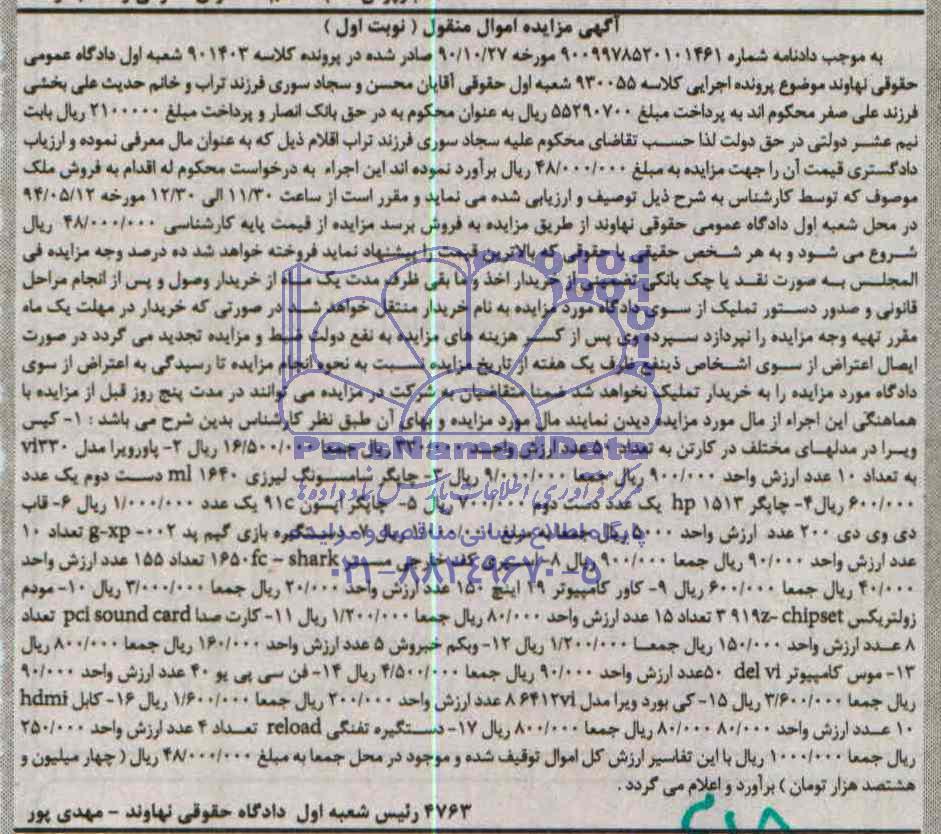 آگهی مزایده اموال منقول ( نوبت اول )
به موجب دادنامه شماره ۹۰۰۹۹۷۸۵۲۰۱۰۱۴۶۱ مورخه ۹۰/۱۰/۲۷ صادر شده در پرونده کلاسه ۹۰۱۴۰۳ شعبه اول دادگاه عمومی
حقوقی نهاوند موضوع پرونده اجرایی کلاسه ۹۳۰۰۵۵ شعبه اول حقوقی آقایان محسن و سجاد سوری فرزند تراب و خانم حدیث علی بخشی
فرزند علی صفر محکوم اند به پرداخت مبلغ ۵۵۲۹۰۷۰۰ ریال به عنوان محکوم به در حق بانک انصار و پرداخت مبلغ ۲۱۰۰۰۰۰ ریال بابت
نیم عشر دولتی در حق دولت لذا حسب تقاضای محکوم علیه سجاد سوری فرزند تراب اقلام ذیل که به عنوان مال معرفی نموده و ارزیاب
دادگستری قیمت آن را جهت مزایده به مبلغ ۴۸/۰۰۰/۰۰۰ ریال برآورد نموده اند این اجراء به درخواست محکوم له اقدام به فروش ملک
موصوف که توسط کارشناس به شرح ذیل توصیف و ارزیابی شده می نماید و مقرر است از ساعت ۱۱/۳۰ الی ۱۲/۳۰ مورخه ۹۴/۰۵/۱۲
در محل شعبه اول دادگاه عمومی حقوقی نهاوند از طریق مزایده به فروش برسد مزایده از قیمت پایه کارشناسی ۴۸/۰۰۰/۰۰۰ ریال
شروع می شود و به هر شخص حقیقی یا حقوقی که بالاترین قیمت را پیشنهاد نماید فروخته خواهد شد ده درصد وجه مزایده فی
المجلس به صورت نقد یا چک بانکی تضمینی از خریدار اخذ و ما بقی ظرف مدت یک ماه از خریدار وصول و پس از انجام مراحل
قانونی و صدور دستور تملیک از سوی دادگاه مورد مزایده به نام خریدار منتقل خواهد شد در صورتی که خریدار در مهلت یک ماه
مقرر تهیه وجه مزایده را نپردازد سپرده وی پس از کسر هزینه های مزایده به نفع دولت ضبط و مزایده تجدید می گردد در صورت
ایصال اعتراض از سوی اشخاص ذینفع ظرف یک هفته از تاریخ مزایده نسبت به نحوه انجام مزایده تا رسیدگی به اعتراض از سوی
دادگاه مورد مزایده را به خریدار تملیک نخواهد شد ضمنا متقاضیان به شرکت در مزایده می توانند در مدت پنج روز قبل از مزایده با
هماهنگی این اجراء از مال مورد مزایده دیدن نمایند مال مورد مزایده و بهای آن طبق نظر کارشناس بدین شرح می باشد : ۱- کیس
ویرا در مدلهای مختلف در کارتن به تعداد ۵۰ عدد ارزش واحد ۳۳۰/۰۰۰ ریال جمعا ۱۶/۵۰۰/۰۰۰ ریال ۲- پاورویرا مدل vi۳۳۰
به تعداد ۱۰ عدد ارزش واحد ۹۰۰/۰۰۰ ریال جمعا ۹/۰۰۰/۰۰۰ ریال ۳- چاپگر سامسونگ لیزری ml ۱۶۴۰ دست دوم یک عدد
۶۰۰/۰۰۰ ریال ۴- چاپگر hp ۱۵۱۳ یک عدد دست دوم ۷۰۰/۰۰۰ ریال ۵- چاپگر اپسون ۹۱c یک عدد ۱/۰۰۰/۰۰۰ ریال ۶- قاب
دی وی دی ۲۰۰ عدد ارزش واحد ۵۰۰۰ ریال جمعا به مبلغ ریال ۷- دستگیره بازی گیم پد g-xp -۰۰۲ تعداد ۱۰
عدد ارزش واحد ۹۰/۰۰۰ ریال جمعا ۹۰۰/۰۰۰ ریال ۸- اسپری کف خارجی fc – shark ۱۶۵۰ تعداد ۱۵۵ عدد ارزش واحد
۴۰/۰۰۰ ریال جمعا ۶۰۰/۰۰۰ ریال ۹- کاور کامپیوتر ۱۹ اینچ ۱۵۰ عدد ارزش واحد ۲۰/۰۰۰ ریال جمعا ۳/۰۰۰/۰۰۰ ریال ۱۰- مودم
زولتریکس ۳ ۹۱۹z- chipset تعداد ۱۵ عدد ارزش واحد ۸۰/۰۰۰ ریال جمعا ۱/۲۰۰/۰۰۰ ریال ۱۱- کارت صدا pci sound card تعداد
۸ عدد ارزش واحد ۱۵۰/۰۰۰ ریال جمعا ۱/۲۰۰/۰۰۰ ریال ۱۲- وبکم خبروش ۵ عدد ارزش واحد ۱۶۰/۰۰۰ ریال جمعا ۸۰۰/۰۰۰ ریال
۱۳- موس کامپیوتر del vi ۵۰عدد ارزش واحد ۹۰/۰۰۰ ریال جمعا ۴/۵۰۰/۰۰۰ ریال ۱۴- فن سی پی یو ۴۰ عدد ارزش واحد ۹۰/۰۰۰
ریال جمعا ۳/۶۰۰/۰۰۰ ریال ۱۵- کی بورد ویرا مدل ۶۴۱۲vi ۸ عدد ارزش واحد ۲۰۰/۰۰۰ ریال جمعا ۱/۶۰۰/۰۰۰ ریال ۱۶- کابل hdmi
۱۰ عدد ارزش واحد ۸۰/۰۰۰ ۸۰/۰۰۰ ریال جمعا ۸۰۰/۰۰۰ ریال ۱۷- دستگیره تفنگی reload تعداد ۴ عدد ارزش واحد ۲۵۰/۰۰۰
ریال جمعا ۱۰۰۰/۰۰۰ ریال با این تفاسیر ارزش کل اموال توقیف شده و موجود در محل جمعا به مبلغ ۴۸/۰۰۰/۰۰۰ ریال ( چهار میلیون و
هشتصد هزار تومان ) برآورد و اعلام می گردد .
۴۷۶۳ رئیس شعبه اول دادگاه حقوقی نهاوند – مهدی پور
ParsNamadData
مرکز فرآوری اطلاعات پارس نماد داده ها
پایگاه اطلاع رسانی مناقصه و مزایده
۰۲۱-۸۸۳۴۹۶۷۰-۵